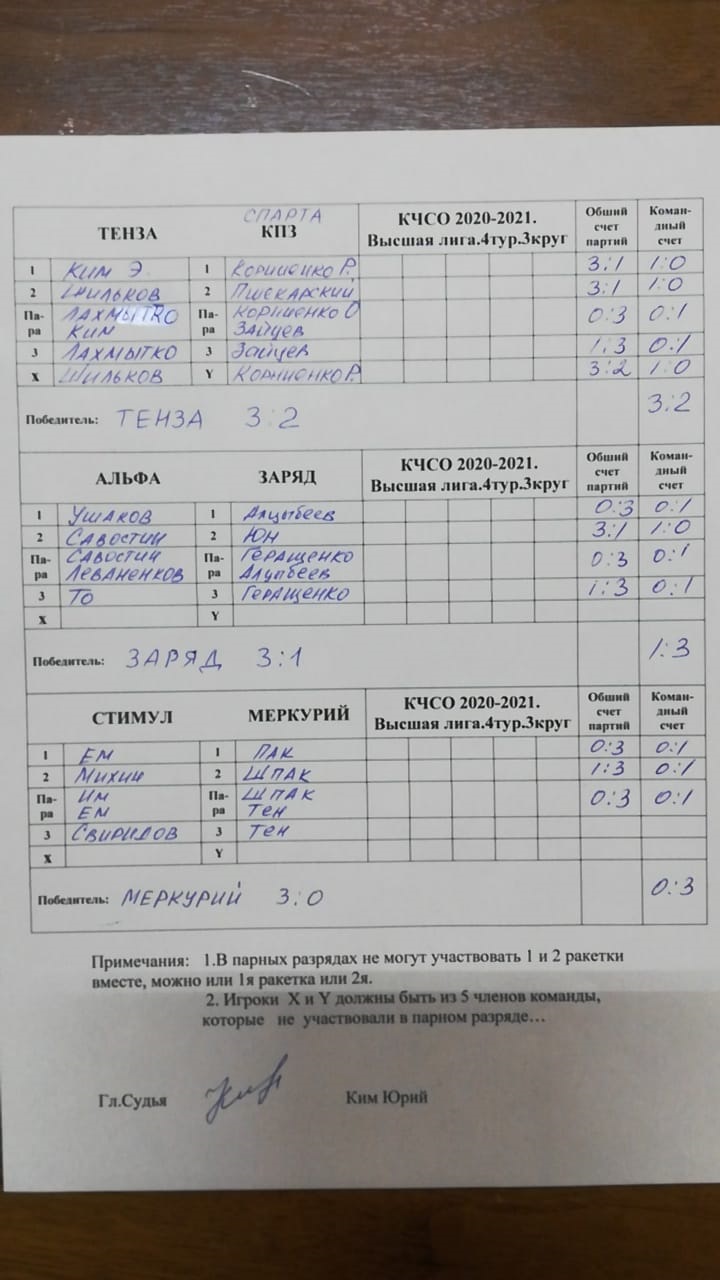 СПАРТА
ТЕНЗА КПЗ КЧСО 2020-2021. Высшая лига.4тур.3круг Обший счет партий Коман-дный счет
1 Ким Э 1 Корниенко Р. 3:1 1:0
2 Шильков 2 Пшекарский 3:1 1:0
Па-ра Лахмытко Па-ра Корниенко О 0:3 0:1
Ким Зайцев
3 Лахмытко 3 Зайцев 1:3 0:1
X Шильков Y Корниенко Р. 3:2 1:0
Победитель: ТЕНЗА 3:2 3:2
АЛЬФА ЗАРЯД КЧСО 2020-2021. Высшая лига.4тур.3круг Обший счет партий Коман-дный счет
1 Ушаков 1 Алцыбеев 0:3 0:1
2 Савостин 2 Юн 3:1 1:0
Па-ра Савостин Па-ра Геращенко 0:3 0:1
Леваненков Алцыбеев
3 То 3 Геращенко 1:3 0:1
X Y
Победитель: ЗАРЯД 3:1 1:3
СТИМУЛ МЕРКУРИЙ КЧСО 2020-2021. Высшая лига.4тур.3круг Обший счет партий Коман-дный счет
1 Ем 1 Пак 0:3 0:1
2 Михин 2 Шпак 1:3 0:1
Па-ра Им Па-ра Шпак 0:3 0:1
Ем Тен
3 Свиридов 3 Тен
X Y
Победитель: МЕРКУРИЙ 3:0 0:3
Примечания: 1.В парных разрядах не могут участвовать 1 и 2 ракетки
вместе, можно или 1я ракетка или 2я.
2. Игроки X и Y должны быть из 5 членов команды,
которые не участвовали в парном разряде…
Гл.Судья Ким Юрий